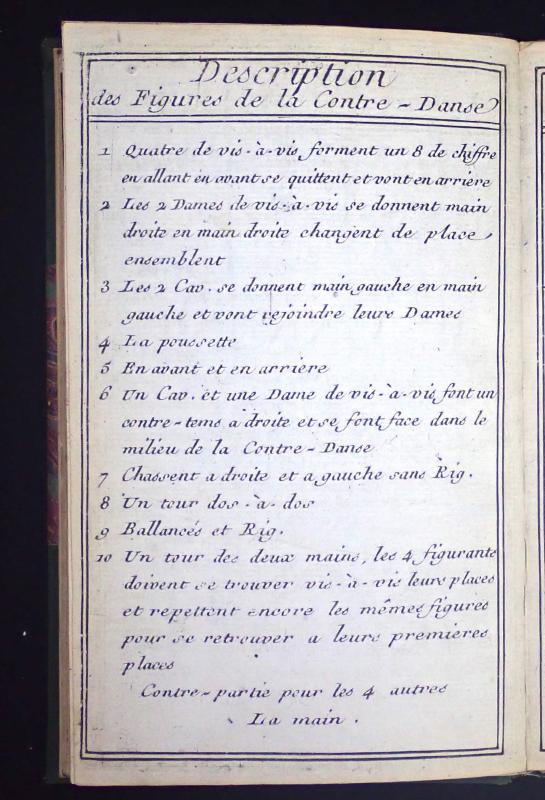 Description
des Figures de la Contre - Danse
1 Quatre de vis-à-vis forment un 8 de chiffre
en allant en avant se quittent et vont en arriere
2 Les 2 Dames de vis-à-vis se donnent main
droite en main droite changent de place
ensemblent
3 Les 2 Cav. se donnent main gauche en main
gauche et vont rejoindre leurs Dames
4 La poussette
5 En avant et en arriere
6 Un Cav. et une Dame de vis-à-vis font un
contre-tems a droite et se font face dans le
milieu de la Contre-Danse
7 Chassent a droite et a gauche sans Rig.
8 Un tour dos-à-dos
9 Ballancés et Rig.
10 Un tour des deux mains, les 4 figurants
doivent se trouver vis-à-vis leurs places
et repettent encore les mêmes figures
pour se retrouver a leurs premieres
places
Contre-partie pour les 4 autres
La main.